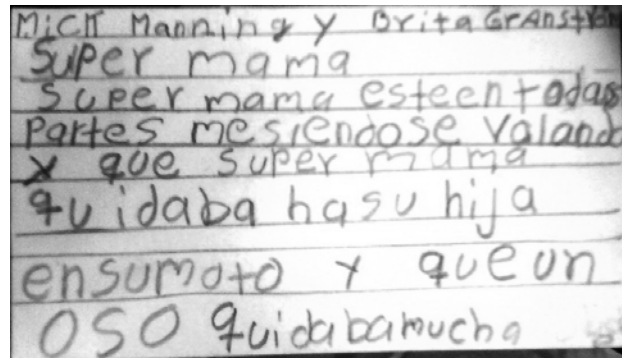 Mick Manning y Brita Granström
Super mama
super mama esteentodas
Partes mesiendose valando
y que super mama
quidaba hasu hija
ensumoto y queun
oso quidabamucha